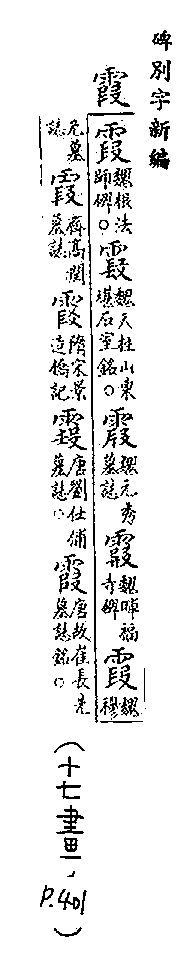 碑別字新編
霞
霞魏根法師碑。霞魏天柱山東堪石室銘。霞魏元秀墓誌霞魏暉福寺碑霞魏穆
元墓誌霞齊高潤墓誌霞隋宋景造橋記霞唐劉仕俌墓誌。霞唐故崔長先墓誌銘。
(十七畫、P.401)